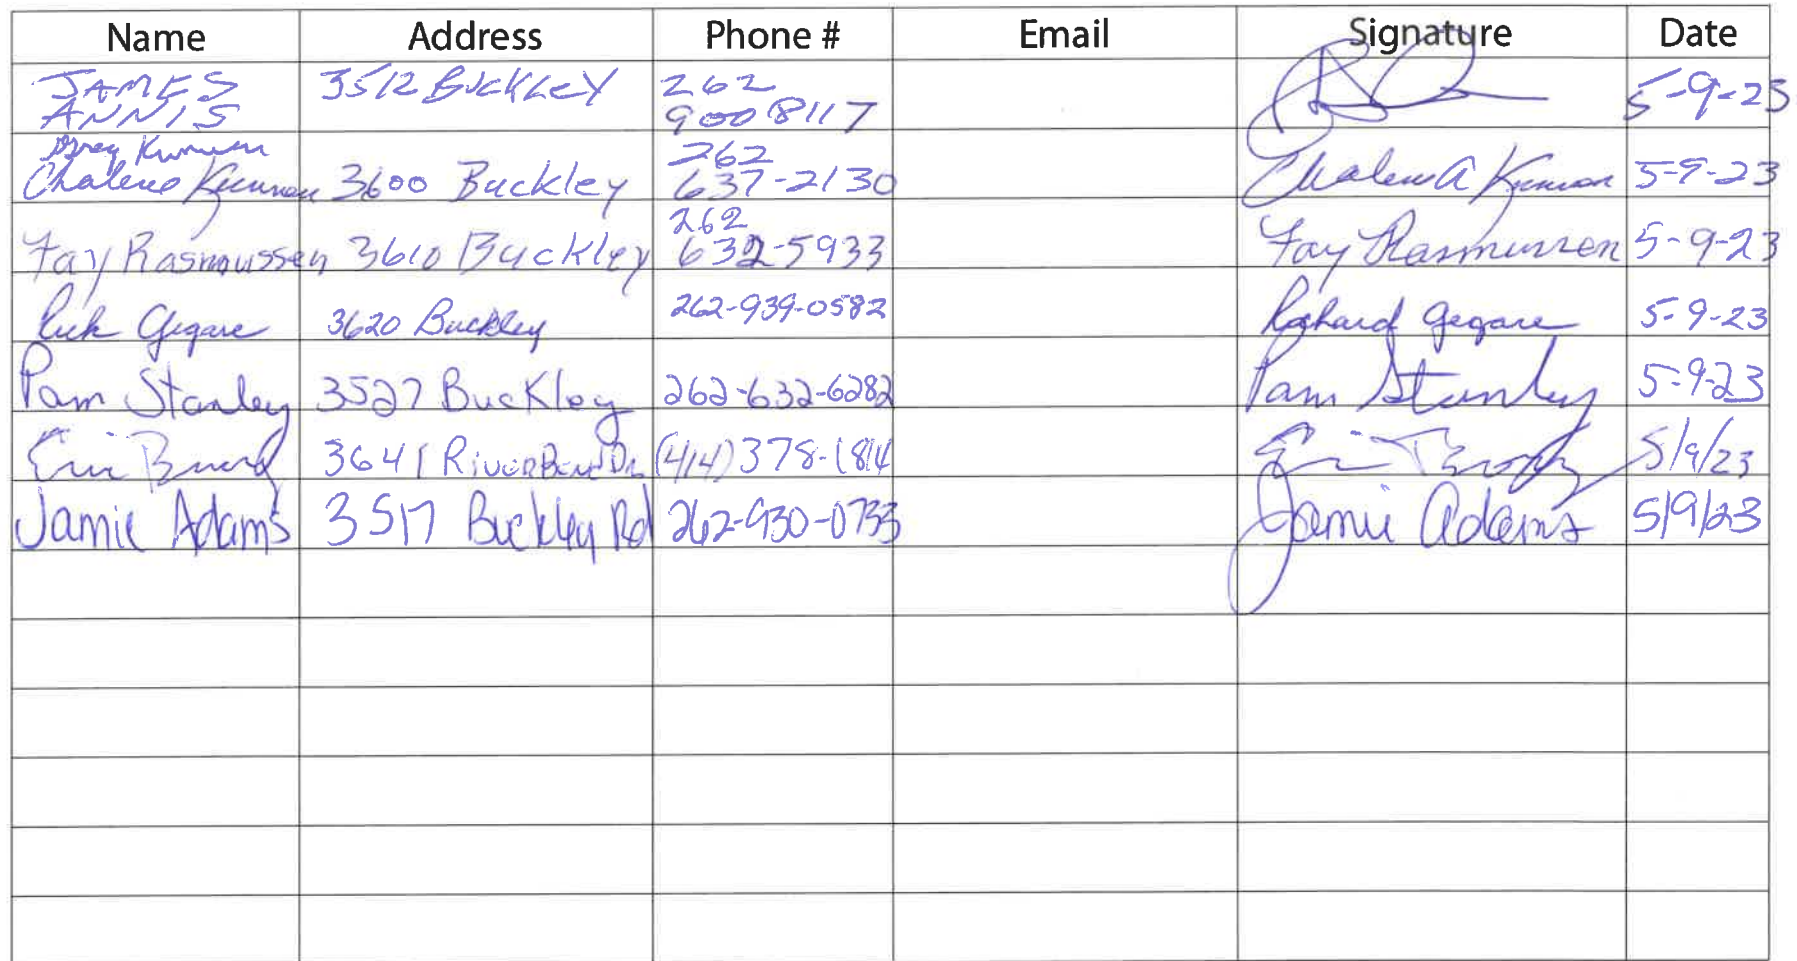 Name Address Phone # Email Signature Date
JAMES 3512 BUCKLEY 262 5-9-23
ANNIS 900 8117
Greg 262
Chalene 3600 Buckley 637-2130 Chalene A 5-9-23
262
Fay Rasmussen 3610 Buckley 632-5933 Fay Rasmussen 5-9-23
Rick Gegare 3620 Buckley 262-939-0582 Richard Gegare 5-9-23
Pam Stanley 3527 Buckley 262-632-6282 Pam Stanley 5-9-23
Eric 3641 RiverBend Dr (414) 378-1814 5/9/23
Jamie Adams 3517 Buckley Rd 262-930-0733 Jamie Adams 5/9/23